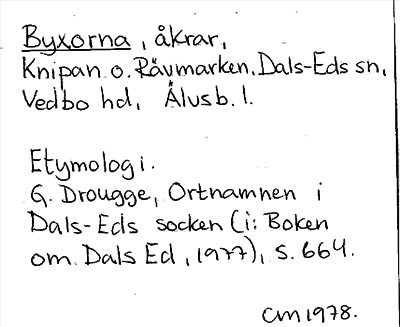 Byxorna, åkrar,
Knipan o. Rävmarken, Dals-Eds sn,
Vedbo hd, Älvsb. l.
Etymologi.
G. Drougge, Ortnamnen i
Dals-Eds socken (i: Boken
om Dals Ed, 1977), s. 664.
CM 1978.